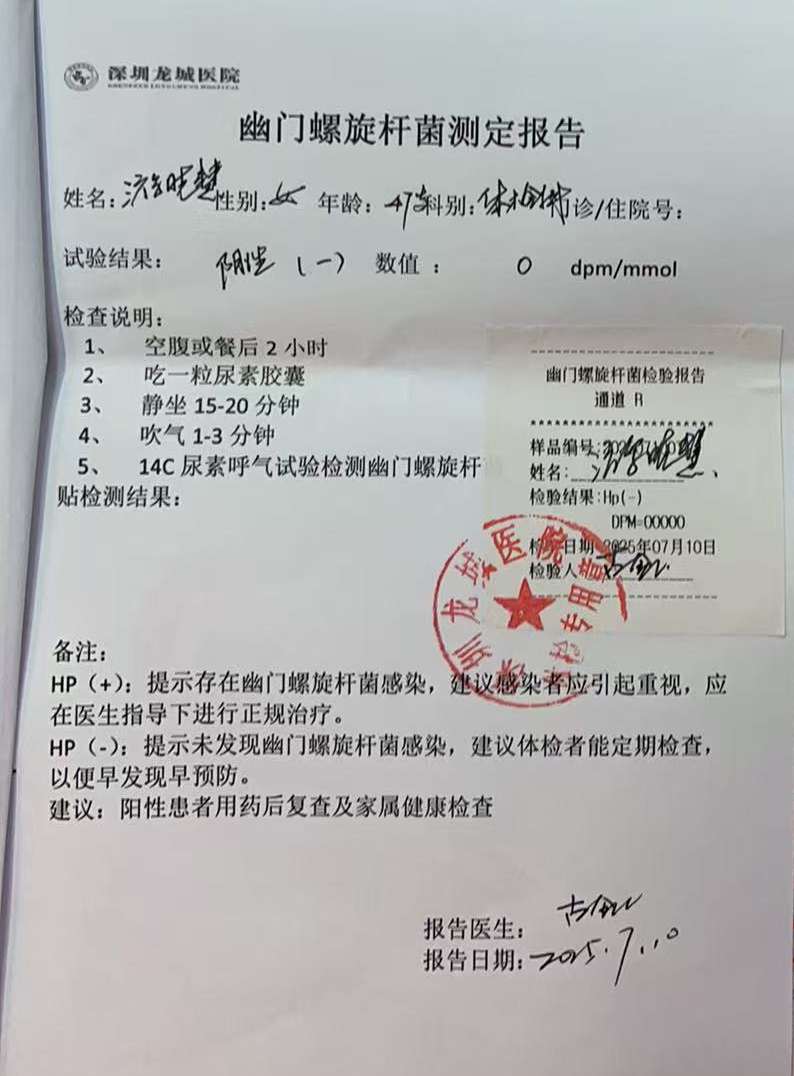 深圳龙城医院
SHENZHEN LONGCHENG HOSPITAL
幽门螺旋杆菌测定报告
姓名: 晓慧 性别: 女 年龄: 47岁 科别: 体检 诊/住院号:
试验结果: 阴性 (一) 数值 : 0 dpm/mmol
检查说明:
1、 空腹或餐后 2 小时
2、 吃一粒尿素胶囊
3、 静坐 15-20 分钟
4、 吹气 1-3 分钟
5、 14C 尿素呼气试验检测幽门螺旋杆
贴检测结果:
--------------------
幽门螺旋杆菌检验报告
通道 R
********************
样品编号:
姓名: 晓慧
检验结果:Hp(-)
DPM=00000
检 日期 2025年07月10日
检验人
--------------------
圳龙城医院
专用章
备注:
HP（+）: 提示存在幽门螺旋杆菌感染，建议感染者应引起重视，应
在医生指导下进行正规治疗。
HP（-）: 提示未发现幽门螺旋杆菌感染，建议体检者能定期检查，
以便早发现早预防。
建议: 阳性患者用药后复查及家属健康检查
报告医生:
报告日期: 2025.7.10